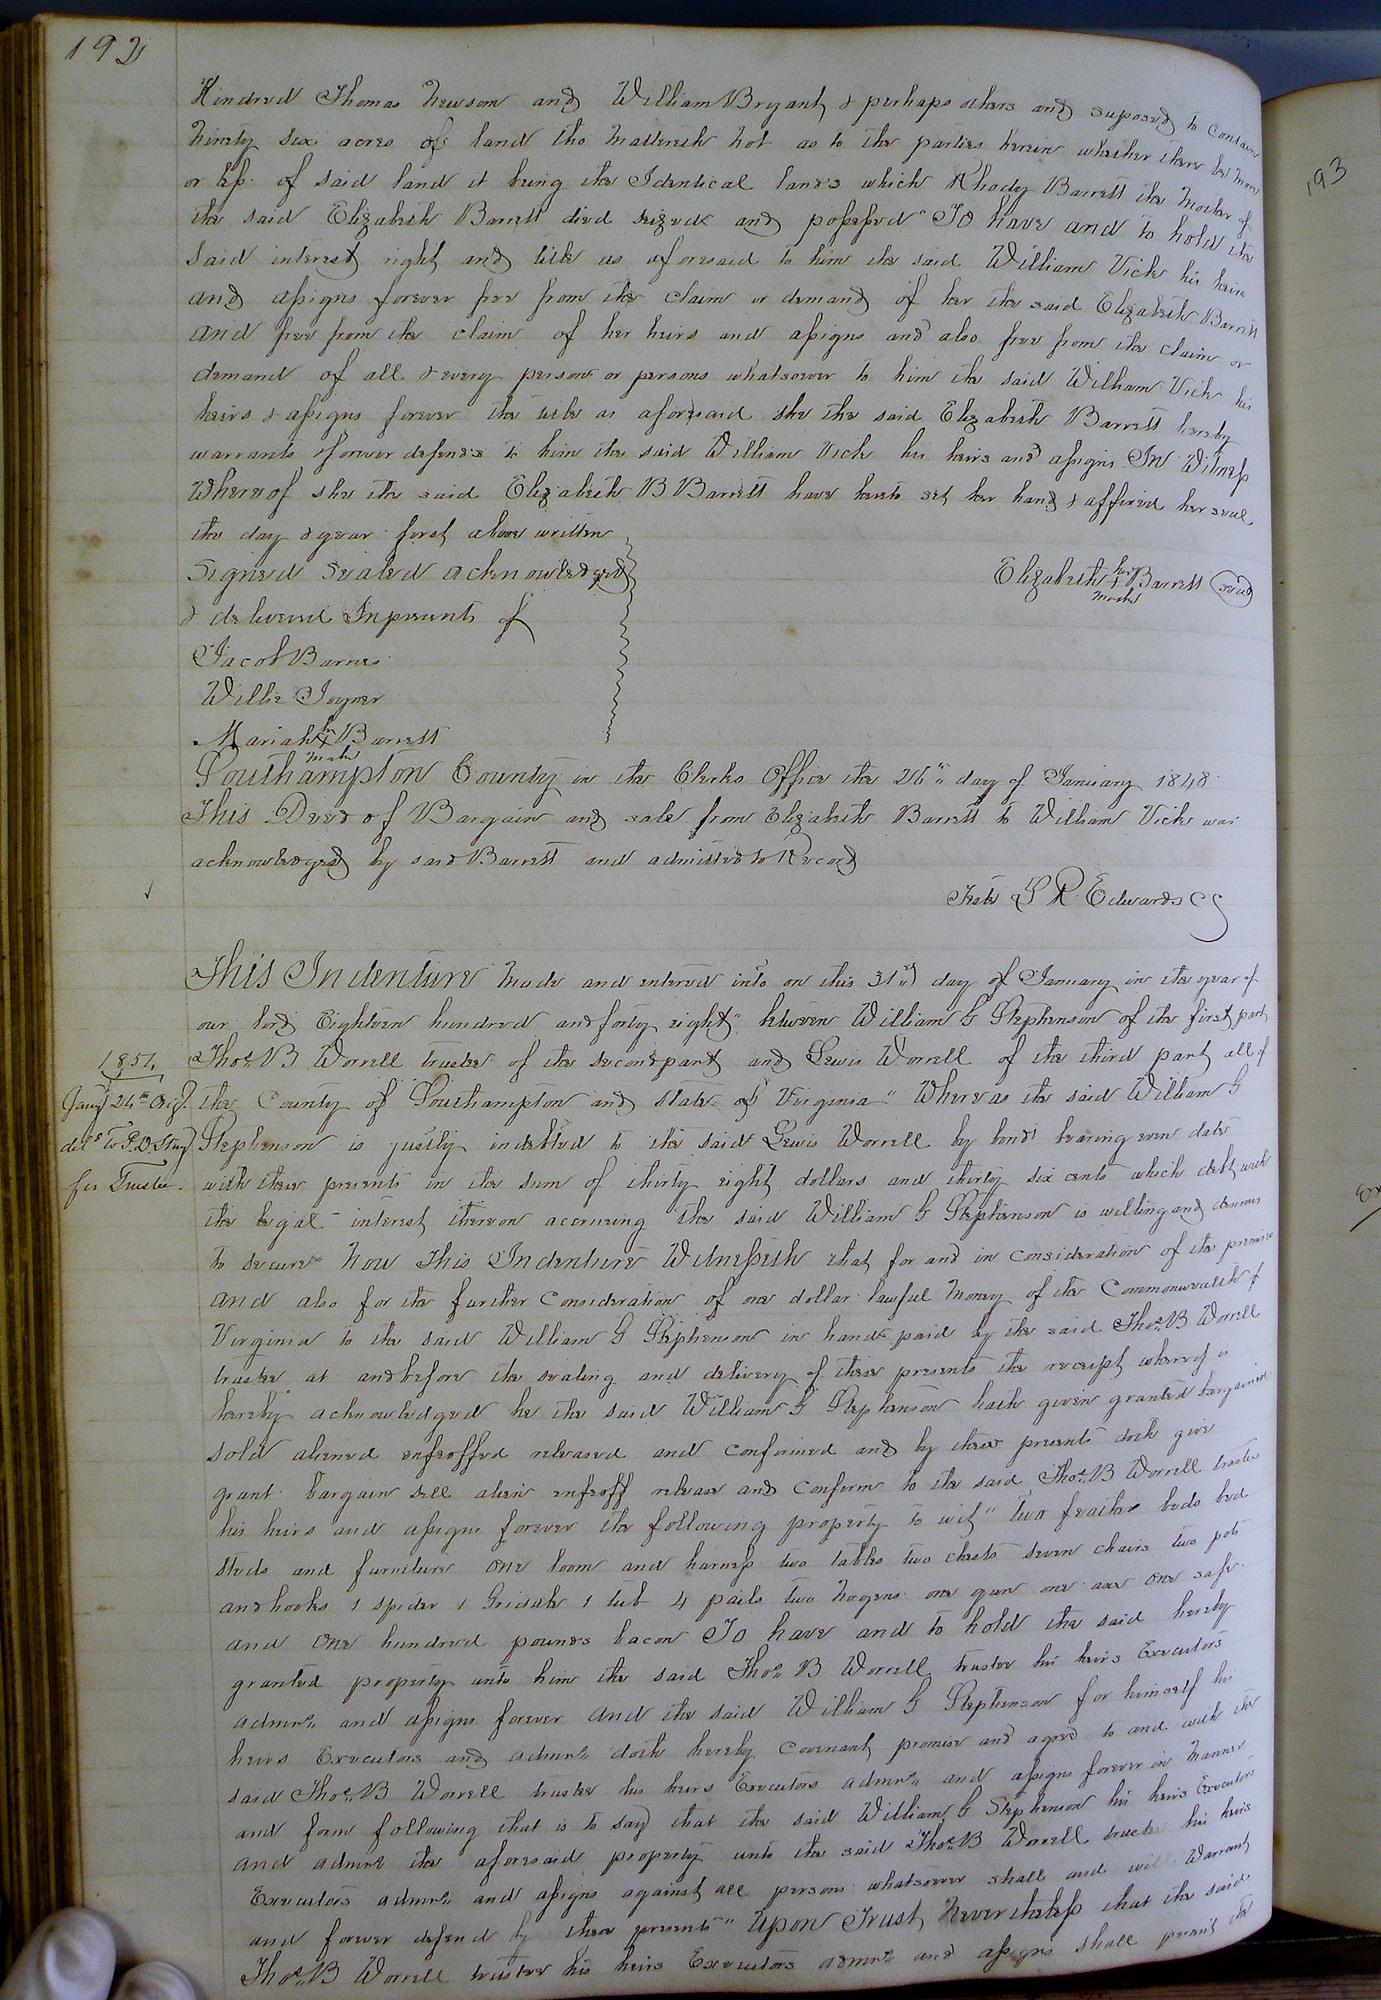 192
Kindred Thomas Newsom and William Bryant & perhaps others and suposed to contain
Ninety six acres of land tho mattereth not as to the parties herein whether there be more
or less of said land it being the Identical lands which Rhody Barrett the Mother of
the said Elizabeth Barrett died seized and possessed" To have and to hold the
said interest right and title as aforesaid to him the said William Vick his heirs
and assigns forever free from the claim or demand of her the said Elizabeth Barrett
and free from the claim of her heirs and assigns and also free from the claim or
demand of all & every person or persons whatsoever to him the said William Vick his
heirs & assigns forever the title as aforesaid she the said Elizabeth Barrett hereby
warrants & forever defends to him the said William Vick his heirs and assigns In Witness
Whereof she the said Elizabeth B Barrett have hereto set her hand & affixed her seal
the day & year first above written
Signed Sealed acknowledged
& delivered In presents of
Elizabeth her + mark Barrett seal
Jacob Barnes
Willie Joyner
Mariah her + mark Barrett
Southampton County in the Clerks Office the 26th day of January 1848
This Deed of Bargain and sale from Elizabeth Barrett to William Vick was
acknowledged by said Barrett and admitted to Record
Teste L R Edwards CC
This Indenture made and entered into on this 31st day of January in the year of
our lord Eighteen hundred and forty eight" between William G Stephenson of the first part
Thos. B Worrell trustee of the second part and Lewis Worrell of the third part all of
the County of Southampton and state of Virginia" Whereas the said William G
Stephenson is justly indebted to the said Lewis Worrell by bond bearing even date
with these presents in the sum of thirty eight dollars and thirty six cents which debt with
the legal interest thereon accrueing the said William G Stephenson is willing and desirous
to secure" Now This Indenture Witnesseth that for and in consideration of the premise
and also for the further consideration of one dollar lawful money of the Commonwealth of
Virginia to the said William G Stephenson in hand paid by the said Thos. B Worrell
trustee at and before the sealing and delivery of these presents the receipt whereof is
hereby acknowledged he the said William G Stephenson hath given granted bargained
sold aliened enfeoffed released and confirmed and by these presents doth give
grant bargain sell alien enfeoff release and confirm to the said Thos. B Worrell trustee
his heirs and assigns forever the following property to wit" two feather beds bed
steds and furniture one loom and harness two tables two chests seven chairs two pots
and hooks 1 spider 1 1 tub 4 pails two one gun one axe one safe
and one hundred pounds bacon To have and to hold the said hereby
granted property unto him the said Thos. B Worrell trustee his heirs Executors
admrs. and assigns forever and the said William G Stephenson for himself his
heirs Executors and admrs. doth hereby covenant promise and agree to and with the
said Thos. B Worrell trustee his heirs Executors admrs. and assigns forever in manner
and form following that is to say that the said William G Stephenson his heirs Executors
and admrs. the aforesaid property unto the said Thos. B Worrell trustee his heirs
Executors admrs. and assigns against all persons whatsoever shall and will Warrant
and forever defend by these presents" Upon Trust Nevertheless that the said
Thos. B Worrell trustee his heirs Executors admrs. and assigns shall permit the
1851.
Jany 24th Orig.
deld to
for Trustee.
193